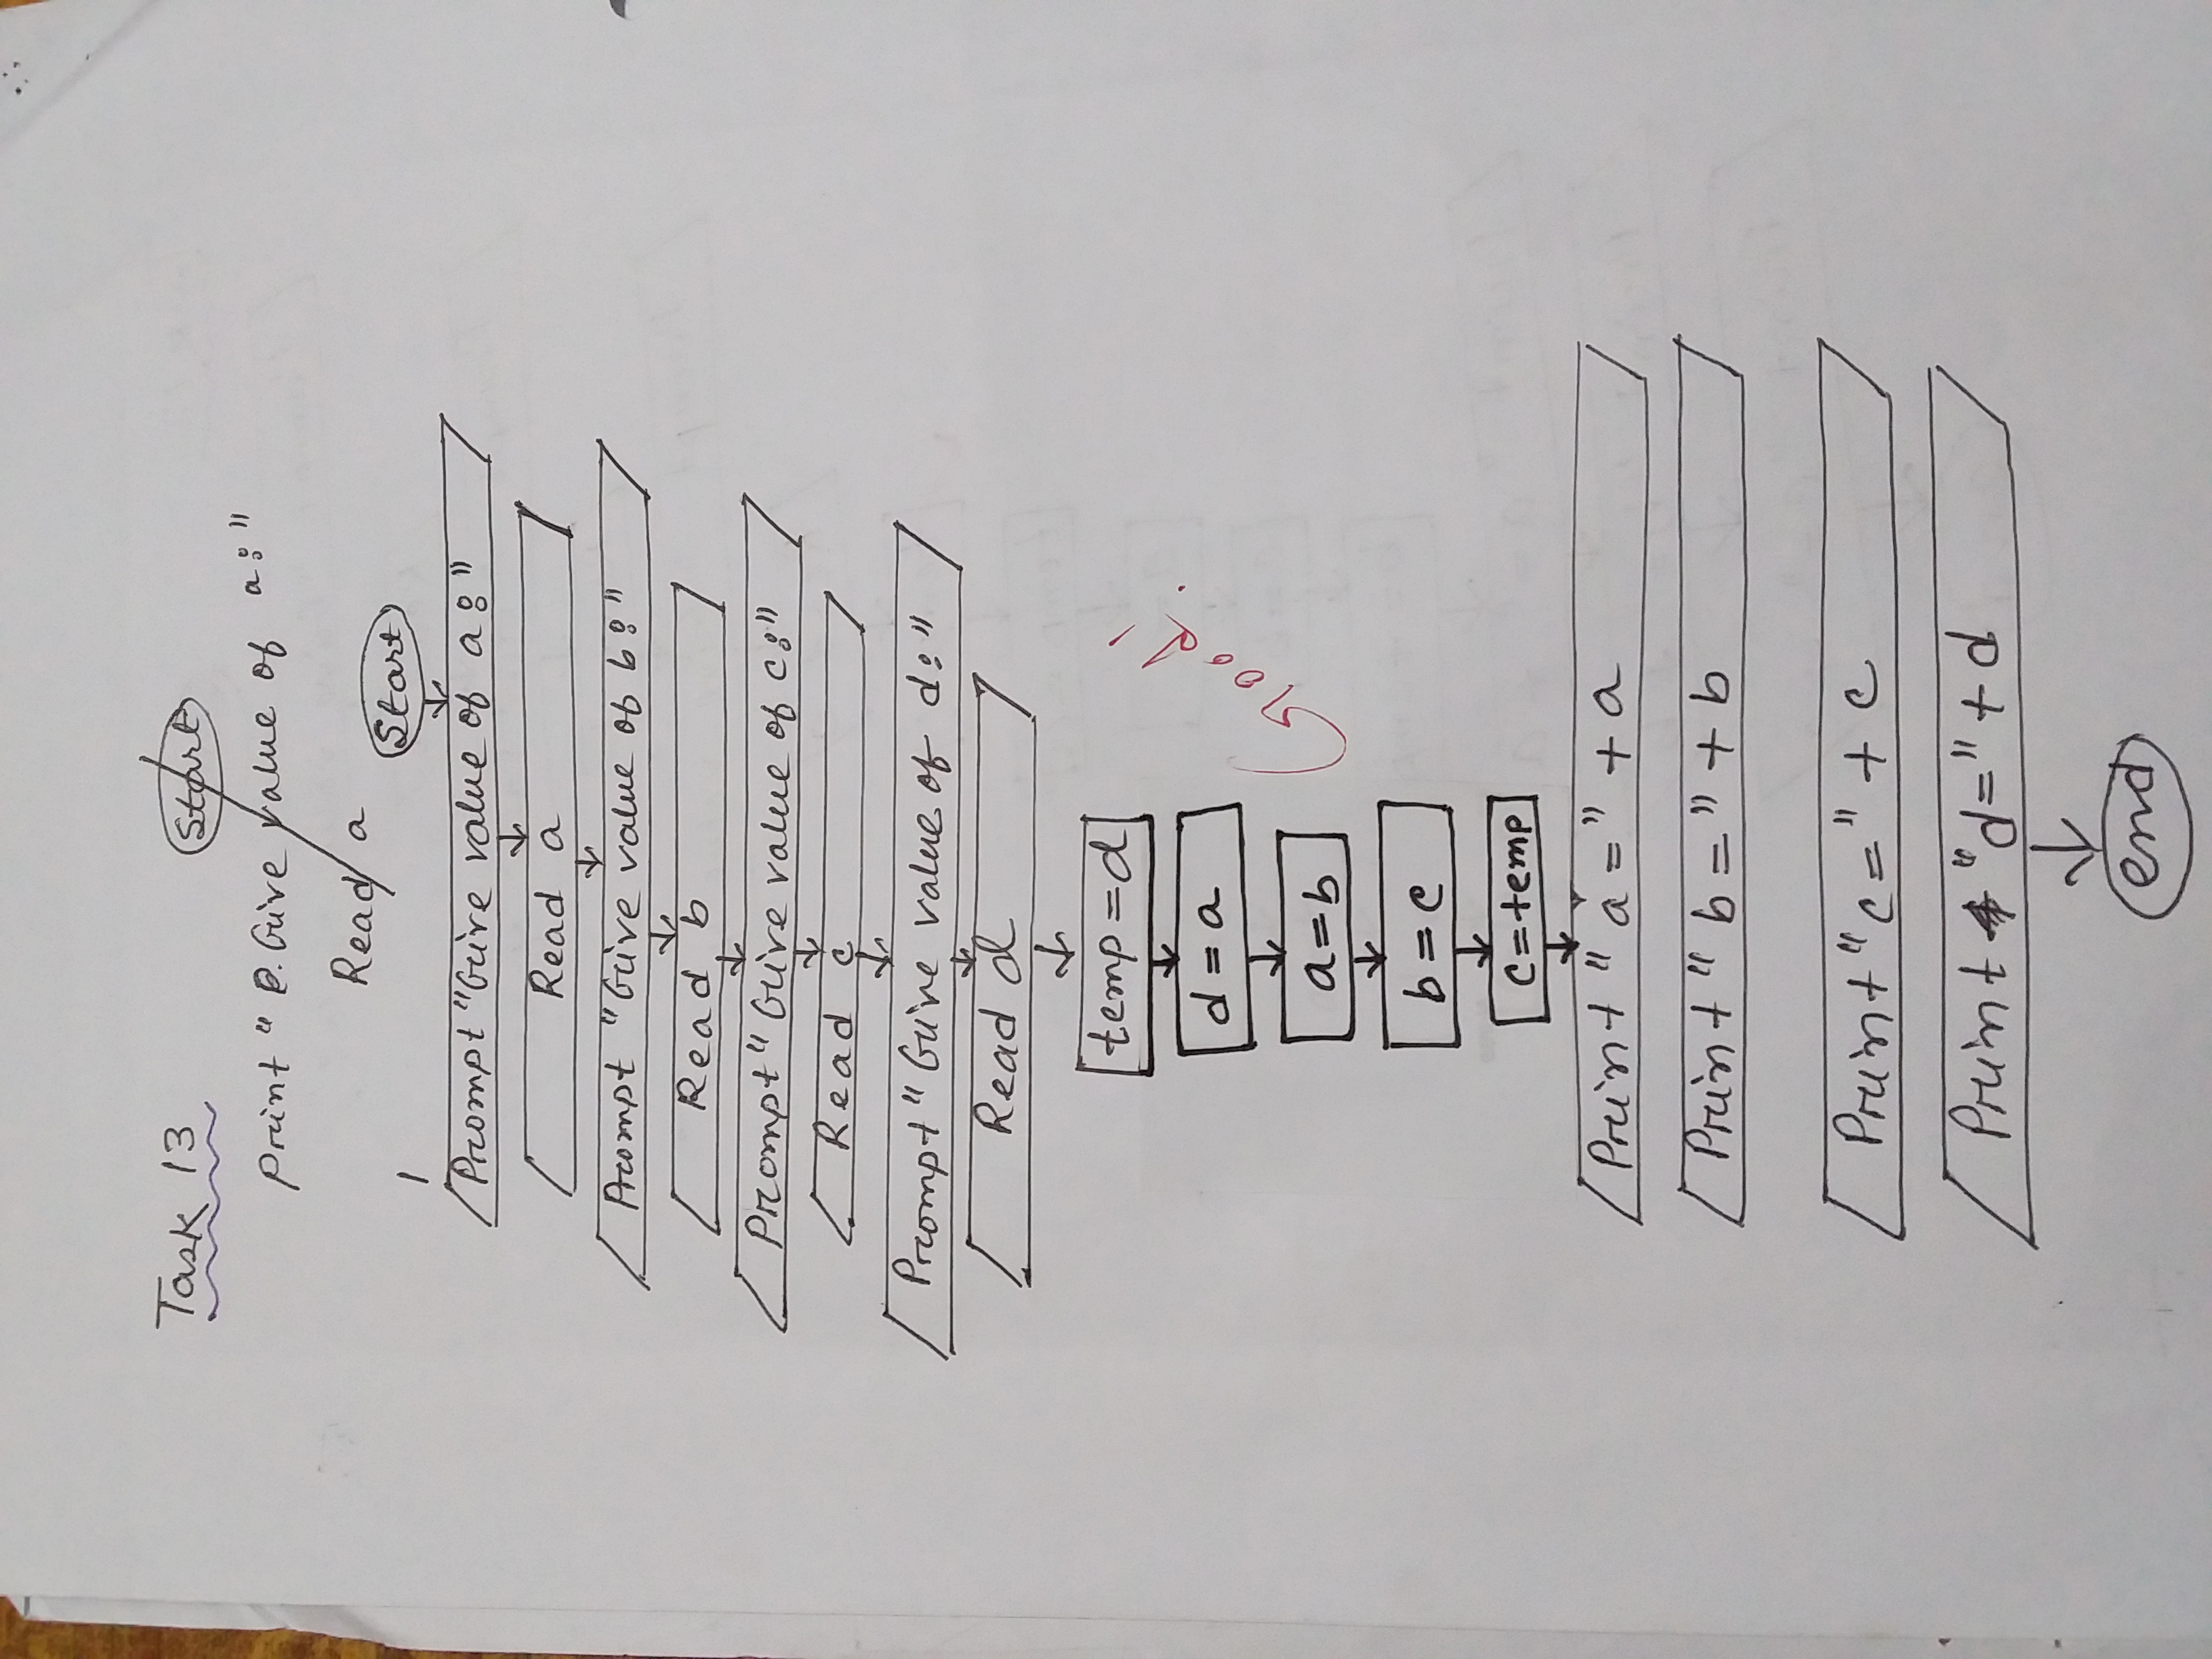 Task 13
Start
print " Give value of a:"
Read a
Start
Prompt "Give value of a:"
Read a
Prompt "Give value of b:"
Read b
Prompt "Give value of c:"
Read c
Prompt "Give value of d:"
Read d
temp = d
d = a
a = b
b = c
c = temp
Good!
Print " a = " + a
Print " b = " + b
Print " c = " + c
Print "d=" + d
end